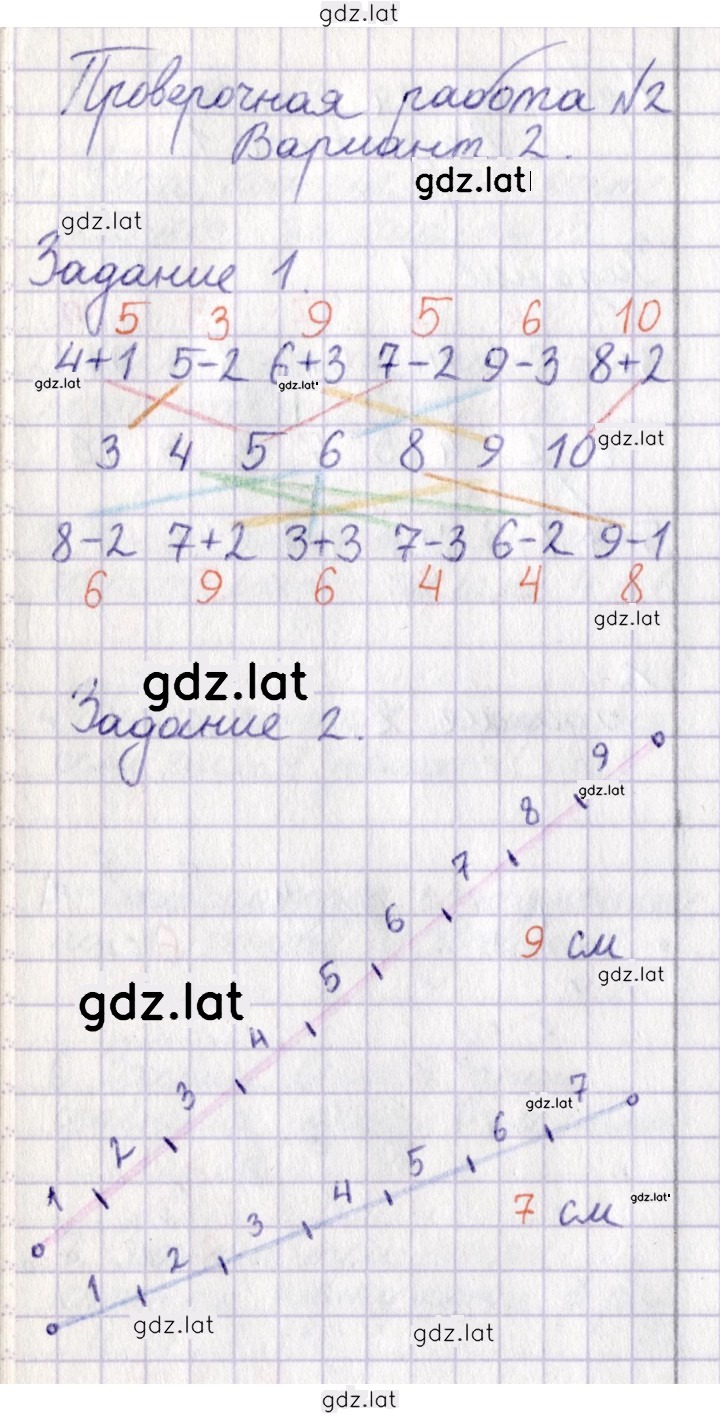 gdz.lat
Проверочная работа №2
Вариант 2.
gdz.lat
gdz.lat
Задание 1.
5 3 9 5 6 10
4+1 5-2 6+3 7-2 9-3 8+2
gdz.lat gdz.lat
3 4 5 6 8 9 10 gdz.lat
8-2 7+2 3+3 7-3 6-2 9-1
6 9 6 4 4 8
gdz.lat
gdz.lat
Задание 2.
9
gdz.lat
8
7
6
9 см
5 gdz.lat
gdz.lat
4
3
7
gdz.lat
2 6
5
1 4 gdz.lat
3 7 см
2
1
gdz.lat gdz.lat
gdz.lat